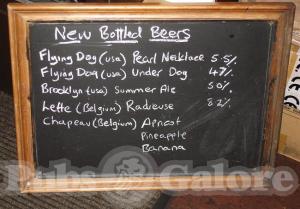 New Bottled Beers
Flying Dog (usa) Pearl Necklace 5.5%
Flying Dog (usa) Under Dog 4.7%
Brooklyn (usa) Summer Ale 5.0%
Leffe (Belgium) Radieuse 8.2%
Chapeau (Belgium) Apricot
Pineapple
Banana
Pubs Galore